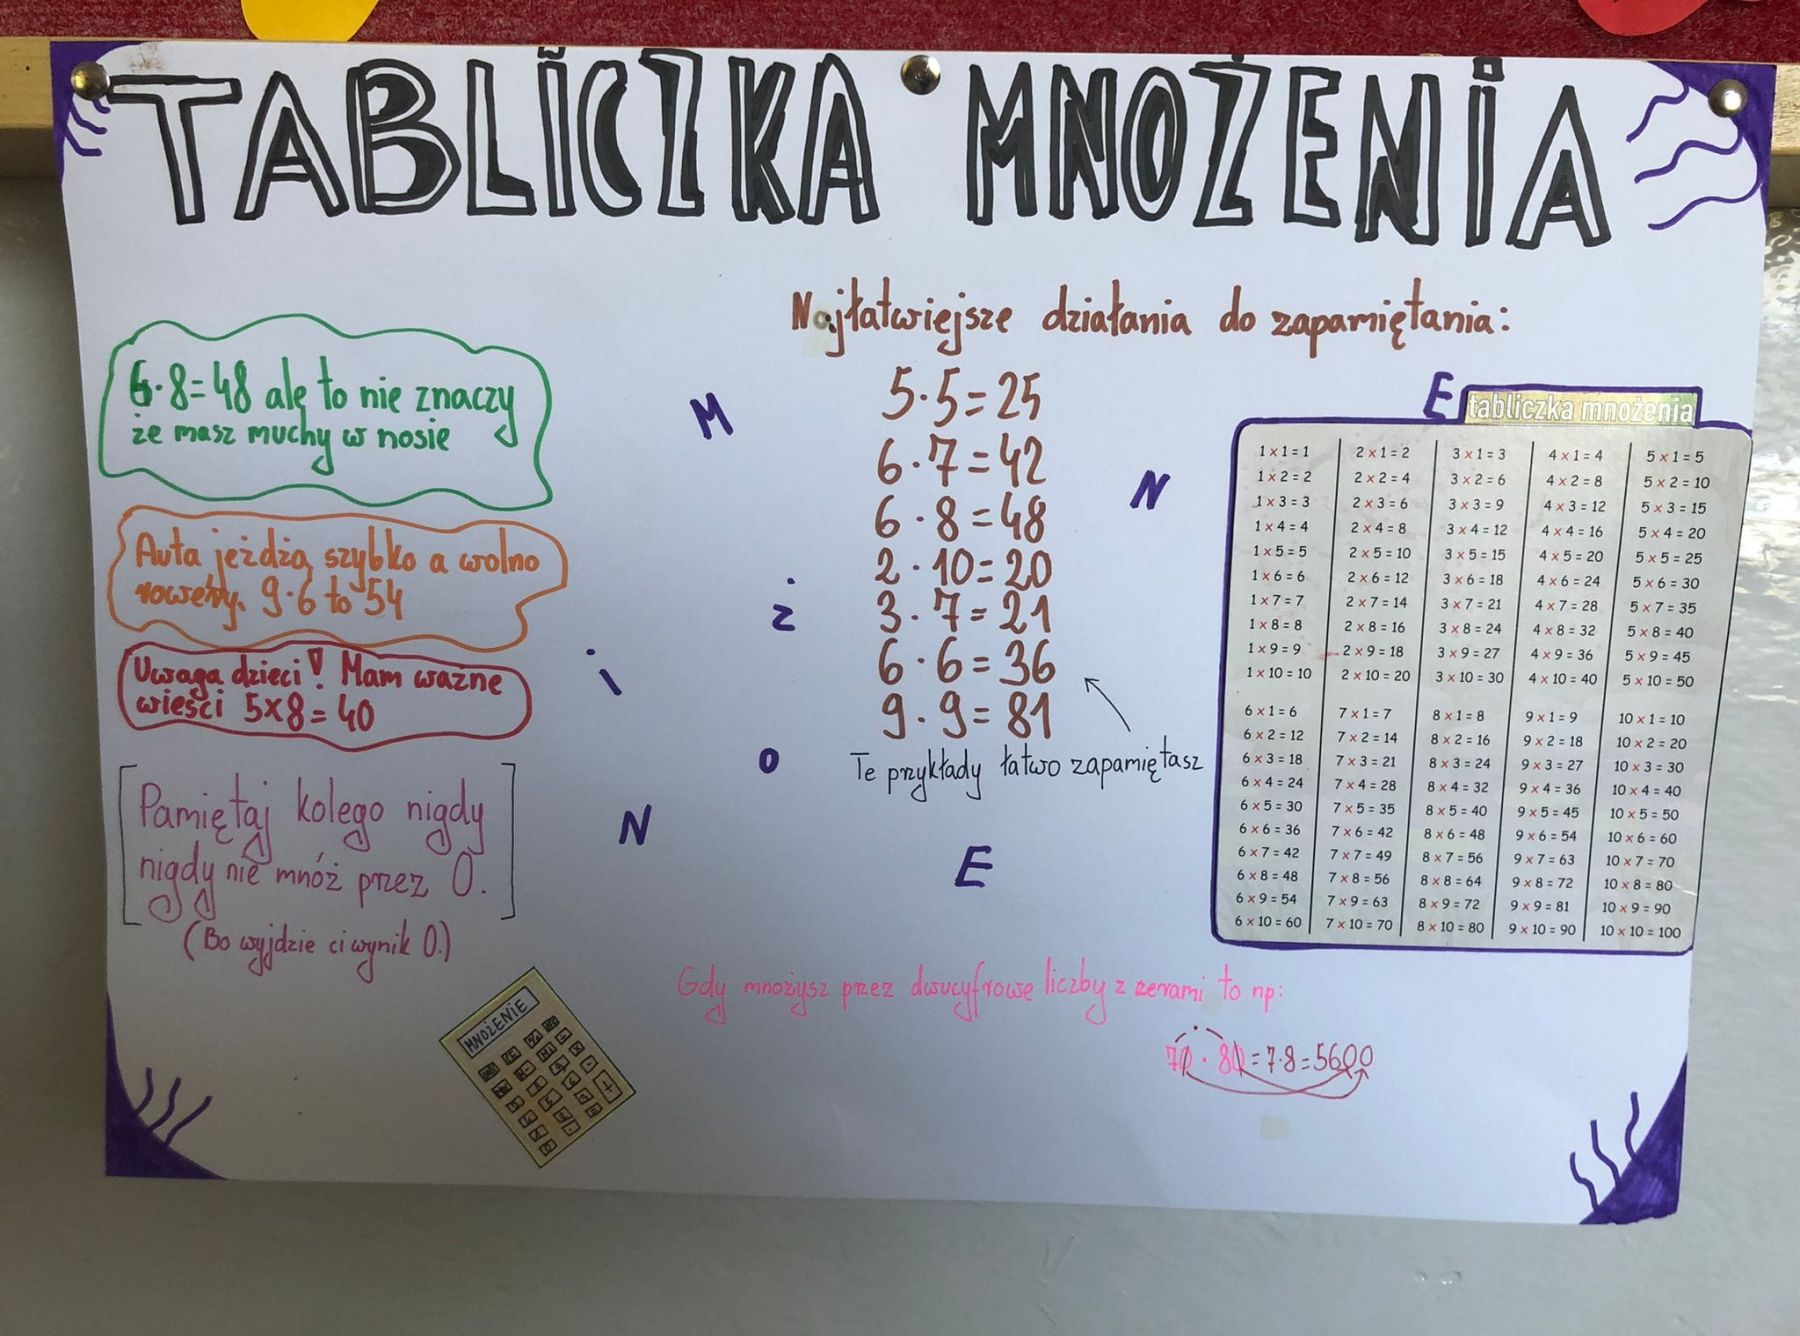 TABLICZKA MNOŻENIA
6·8=48 ale to nie znaczy
że masz muchy w nosie
Auta jeżdżą szybko a wolno
rowery. 9·6 to 54
Uwaga dzieci! Mam ważne
wieści 5x8=40
Pamiętaj kolego nigdy
nigdy nie mnóż przez 0.
(Bo wyjdzie ci wynik 0.)
MNOŻENIE
M
N
E
Ż
i
O
N
E
Najłatwiejsze działania do zapamiętania:
5·5=25
6·7=42
6·8=48
2·10=20
3·7=21
6·6=36
9·9=81
Te przykłady łatwo zapamiętasz
tabliczka mnożenia
1 x 1 = 1 2 x 1 = 2 3 x 1 = 3 4 x 1 = 4 5 x 1 = 5
1 x 2 = 2 2 x 2 = 4 3 x 2 = 6 4 x 2 = 8 5 x 2 = 10
1 x 3 = 3 2 x 3 = 6 3 x 3 = 9 4 x 3 = 12 5 x 3 = 15
1 x 4 = 4 2 x 4 = 8 3 x 4 = 12 4 x 4 = 16 5 x 4 = 20
1 x 5 = 5 2 x 5 = 10 3 x 5 = 15 4 x 5 = 20 5 x 5 = 25
1 x 6 = 6 2 x 6 = 12 3 x 6 = 18 4 x 6 = 24 5 x 6 = 30
1 x 7 = 7 2 x 7 = 14 3 x 7 = 21 4 x 7 = 28 5 x 7 = 35
1 x 8 = 8 2 x 8 = 16 3 x 8 = 24 4 x 8 = 32 5 x 8 = 40
1 x 9 = 9 2 x 9 = 18 3 x 9 = 27 4 x 9 = 36 5 x 9 = 45
1 x 10 = 10 2 x 10 = 20 3 x 10 = 30 4 x 10 = 40 5 x 10 = 50
6 x 1 = 6 7 x 1 = 7 8 x 1 = 8 9 x 1 = 9 10 x 1 = 10
6 x 2 = 12 7 x 2 = 14 8 x 2 = 16 9 x 2 = 18 10 x 2 = 20
6 x 3 = 18 7 x 3 = 21 8 x 3 = 24 9 x 3 = 27 10 x 3 = 30
6 x 4 = 24 7 x 4 = 28 8 x 4 = 32 9 x 4 = 36 10 x 4 = 40
6 x 5 = 30 7 x 5 = 35 8 x 5 = 40 9 x 5 = 45 10 x 5 = 50
6 x 6 = 36 7 x 6 = 42 8 x 6 = 48 9 x 6 = 54 10 x 6 = 60
6 x 7 = 42 7 x 7 = 49 8 x 7 = 56 9 x 7 = 63 10 x 7 = 70
6 x 8 = 48 7 x 8 = 56 8 x 8 = 64 9 x 8 = 72 10 x 8 = 80
6 x 9 = 54 7 x 9 = 63 8 x 9 = 72 9 x 9 = 81 10 x 9 = 90
6 x 10 = 60 7 x 10 = 70 8 x 10 = 80 9 x 10 = 90 10 x 10 = 100
Gdy mnożysz przez dwucyfrowe liczby z zerami to np:
70·80=7·8=5600